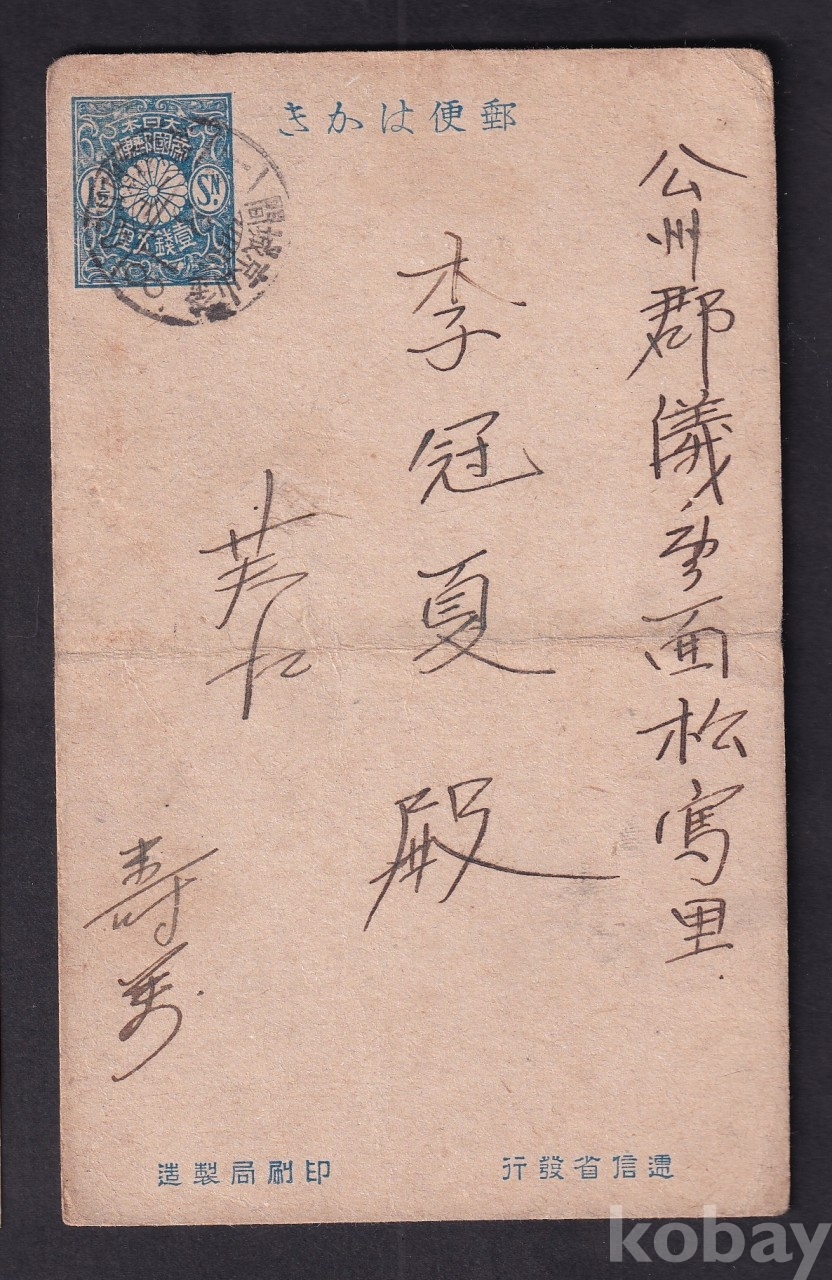 郵便はかき
大日本
帝國郵便
1½
SN
壹錢五厘
釜山京城間
公州郡儀堂面松里
李冠夏殿
壽萬
遞信省發行
印刷局製造
kobay